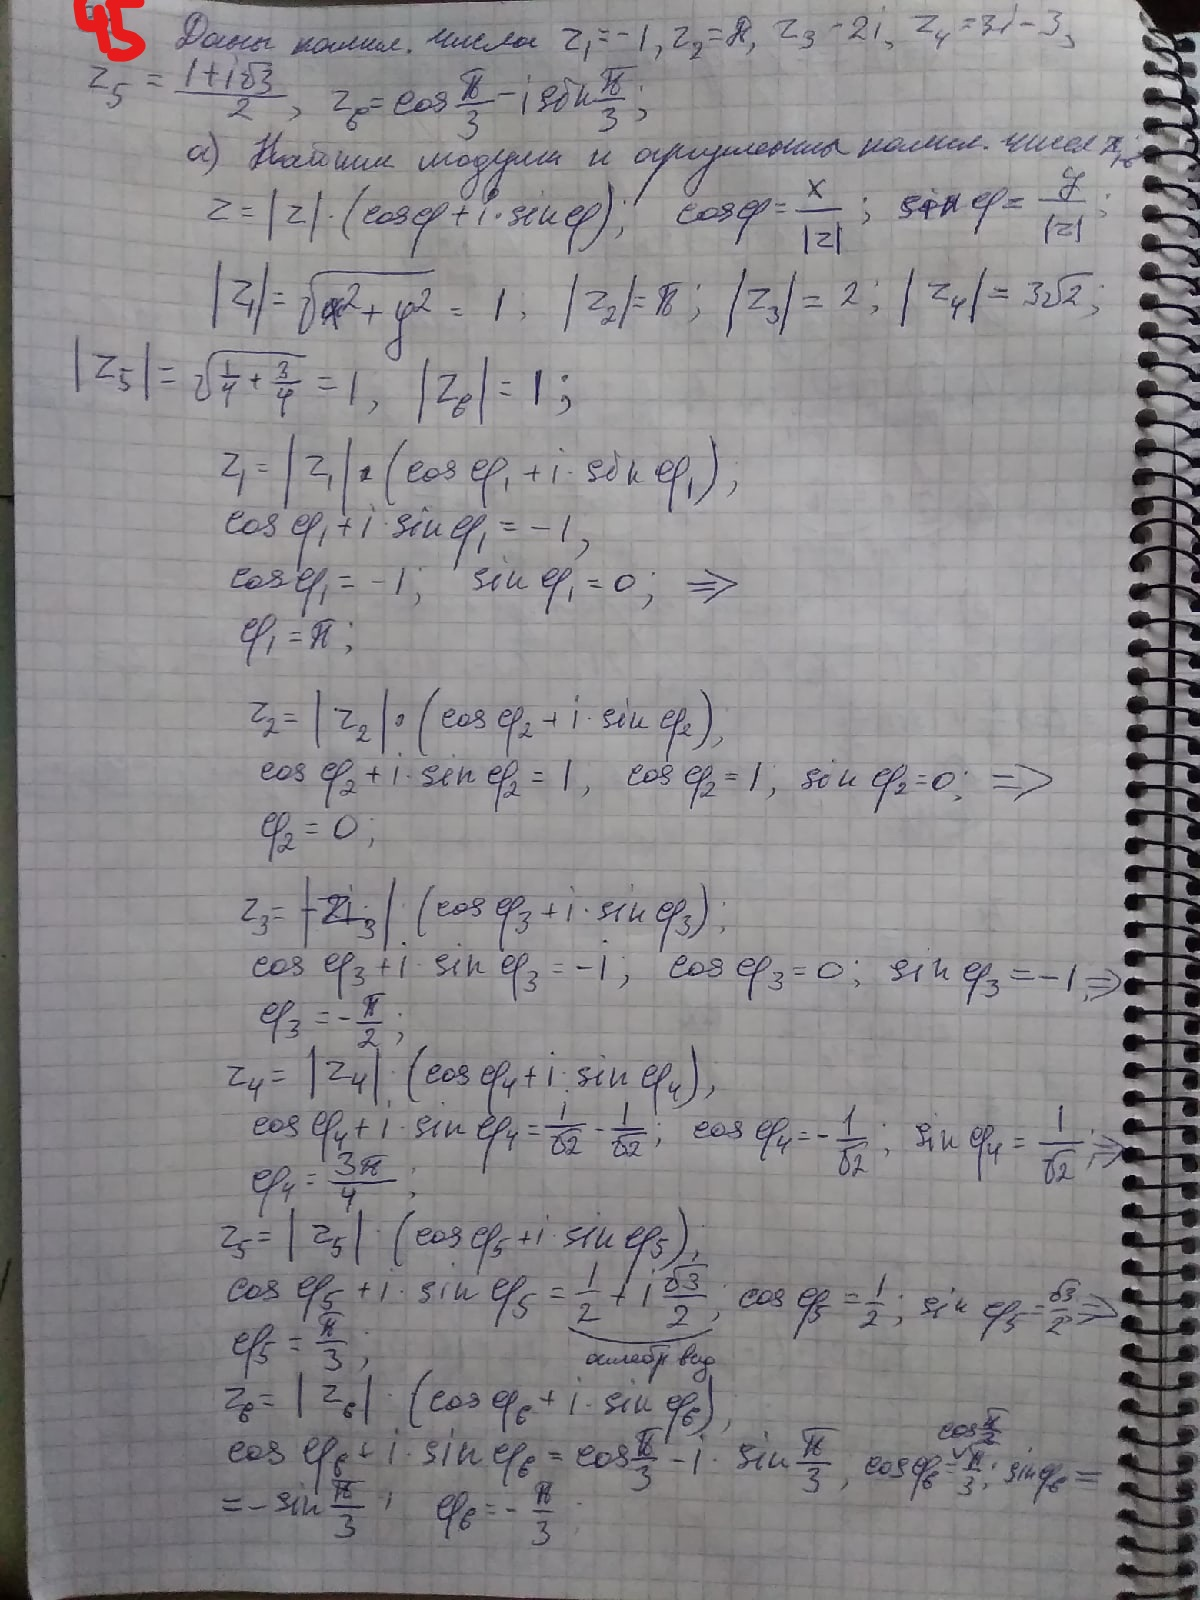 45 Даны компл. числа z₁=-1, z₂=π, z₃ -2i, z₄=3i-3,
z₅ = (1+i√3)/2, z₆=cos π/3 - i sin π/3;
а) Найти модули и аргументы компл. чисел
z=|z|·(cosφ+i·sinφ); cosφ=x/|z|; sinφ=y/|z|;
|z₁|=√(x²+y²) = 1; |z₂|=π; |z₃|=2; |z₄|=3√2;
|z₅|=√(1/4+3/4)=1, |z₆|=1;
z₁=|z₁|·(cosφ₁+i·sinφ₁);
cosφ₁+i·sinφ₁=-1,
cosφ₁=-1; sinφ₁=0; =>
φ₁=π;
z₂=|z₂|·(cosφ₂+i·sinφ₂),
cosφ₂+i·sinφ₂=1, cosφ₂=1, sinφ₂=0; =>
φ₂=0;
z₃=|z₃|·(cosφ₃+i·sinφ₃);
cosφ₃+i·sinφ₃=-i; cosφ₃=0; sinφ₃=-1 =>
φ₃=-π/2;
z₄=|z₄|·(cosφ₄+i·sinφ₄),
cosφ₄+i·sinφ₄=i/√2-1/√2; cosφ₄=-1/√2; sinφ₄=1/√2; =>
φ₄=3π/4;
z₅=|z₅|·(cosφ₅+i·sinφ₅),
cosφ₅+i·sinφ₅=1/2+i√3/2; cosφ₅=1/2; sinφ₅=√3/2 =>
φ₅=π/3; алгебр вид
z₆=|z₆|·(cosφ₆+i·sinφ₆),
cosφ₆+i·sinφ₆=cos π/3-i·sin π/3, cosφ₆=π/3; sinφ₆=
=-sin π/3; φ₆=-π/3;